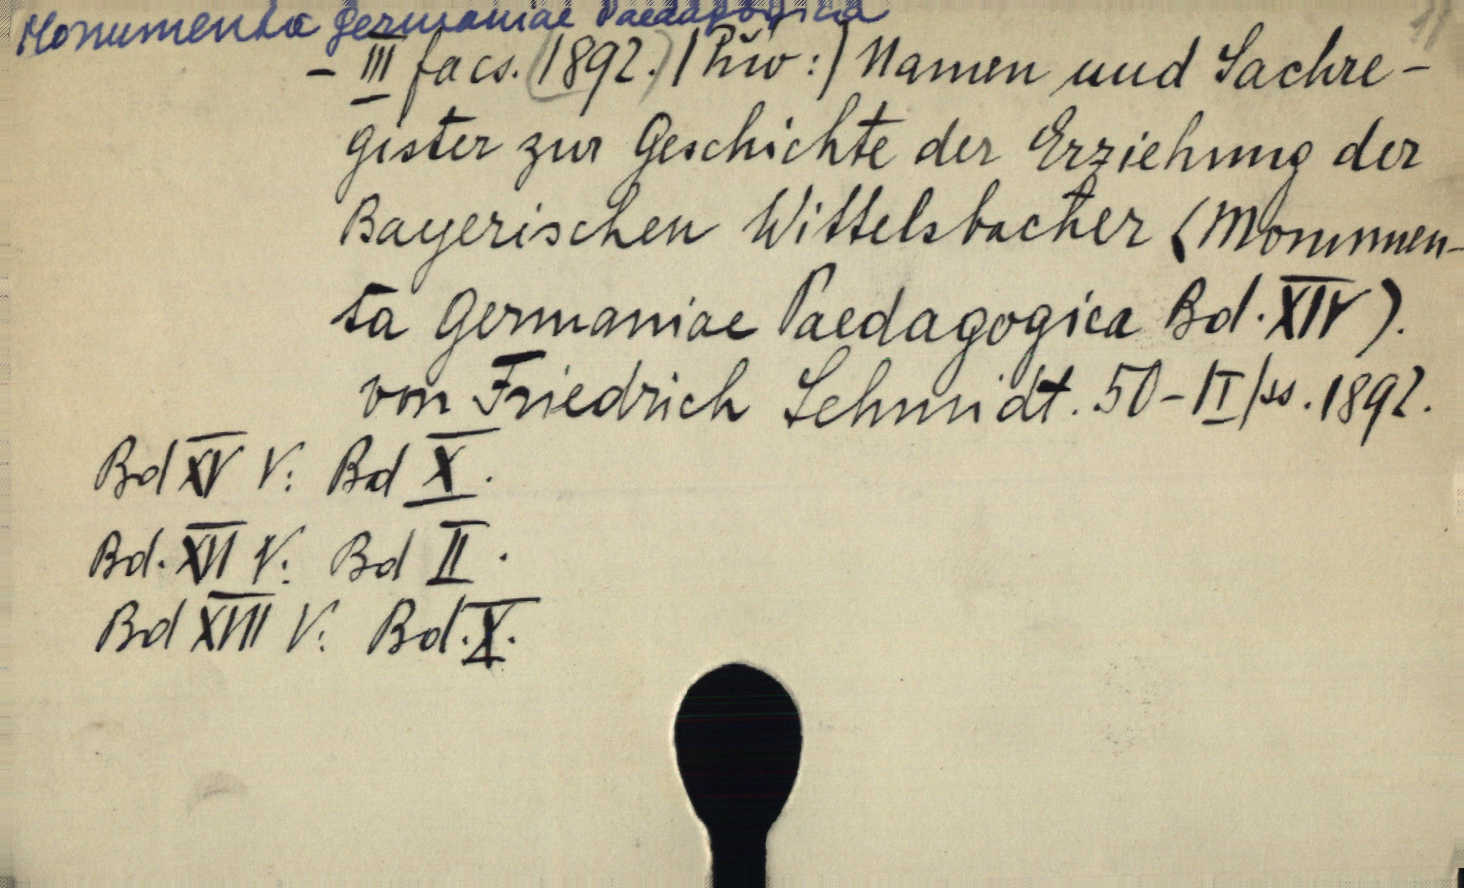 Monumenta Germaniae Paedagogica
- III facs. (1892.) Namen und Sachre-
gister zur Geschichte der Erziehung der
Bayerischen Wittelsbacher (Monumen-
ta Germaniae Paedagogica Bd. XIV).
von Friedrich Schmidt. 50 - 1892.
Bd XV V: Bd X.
Bd. XVI V: Bd II.
Bd XVIII V: Bd. X.